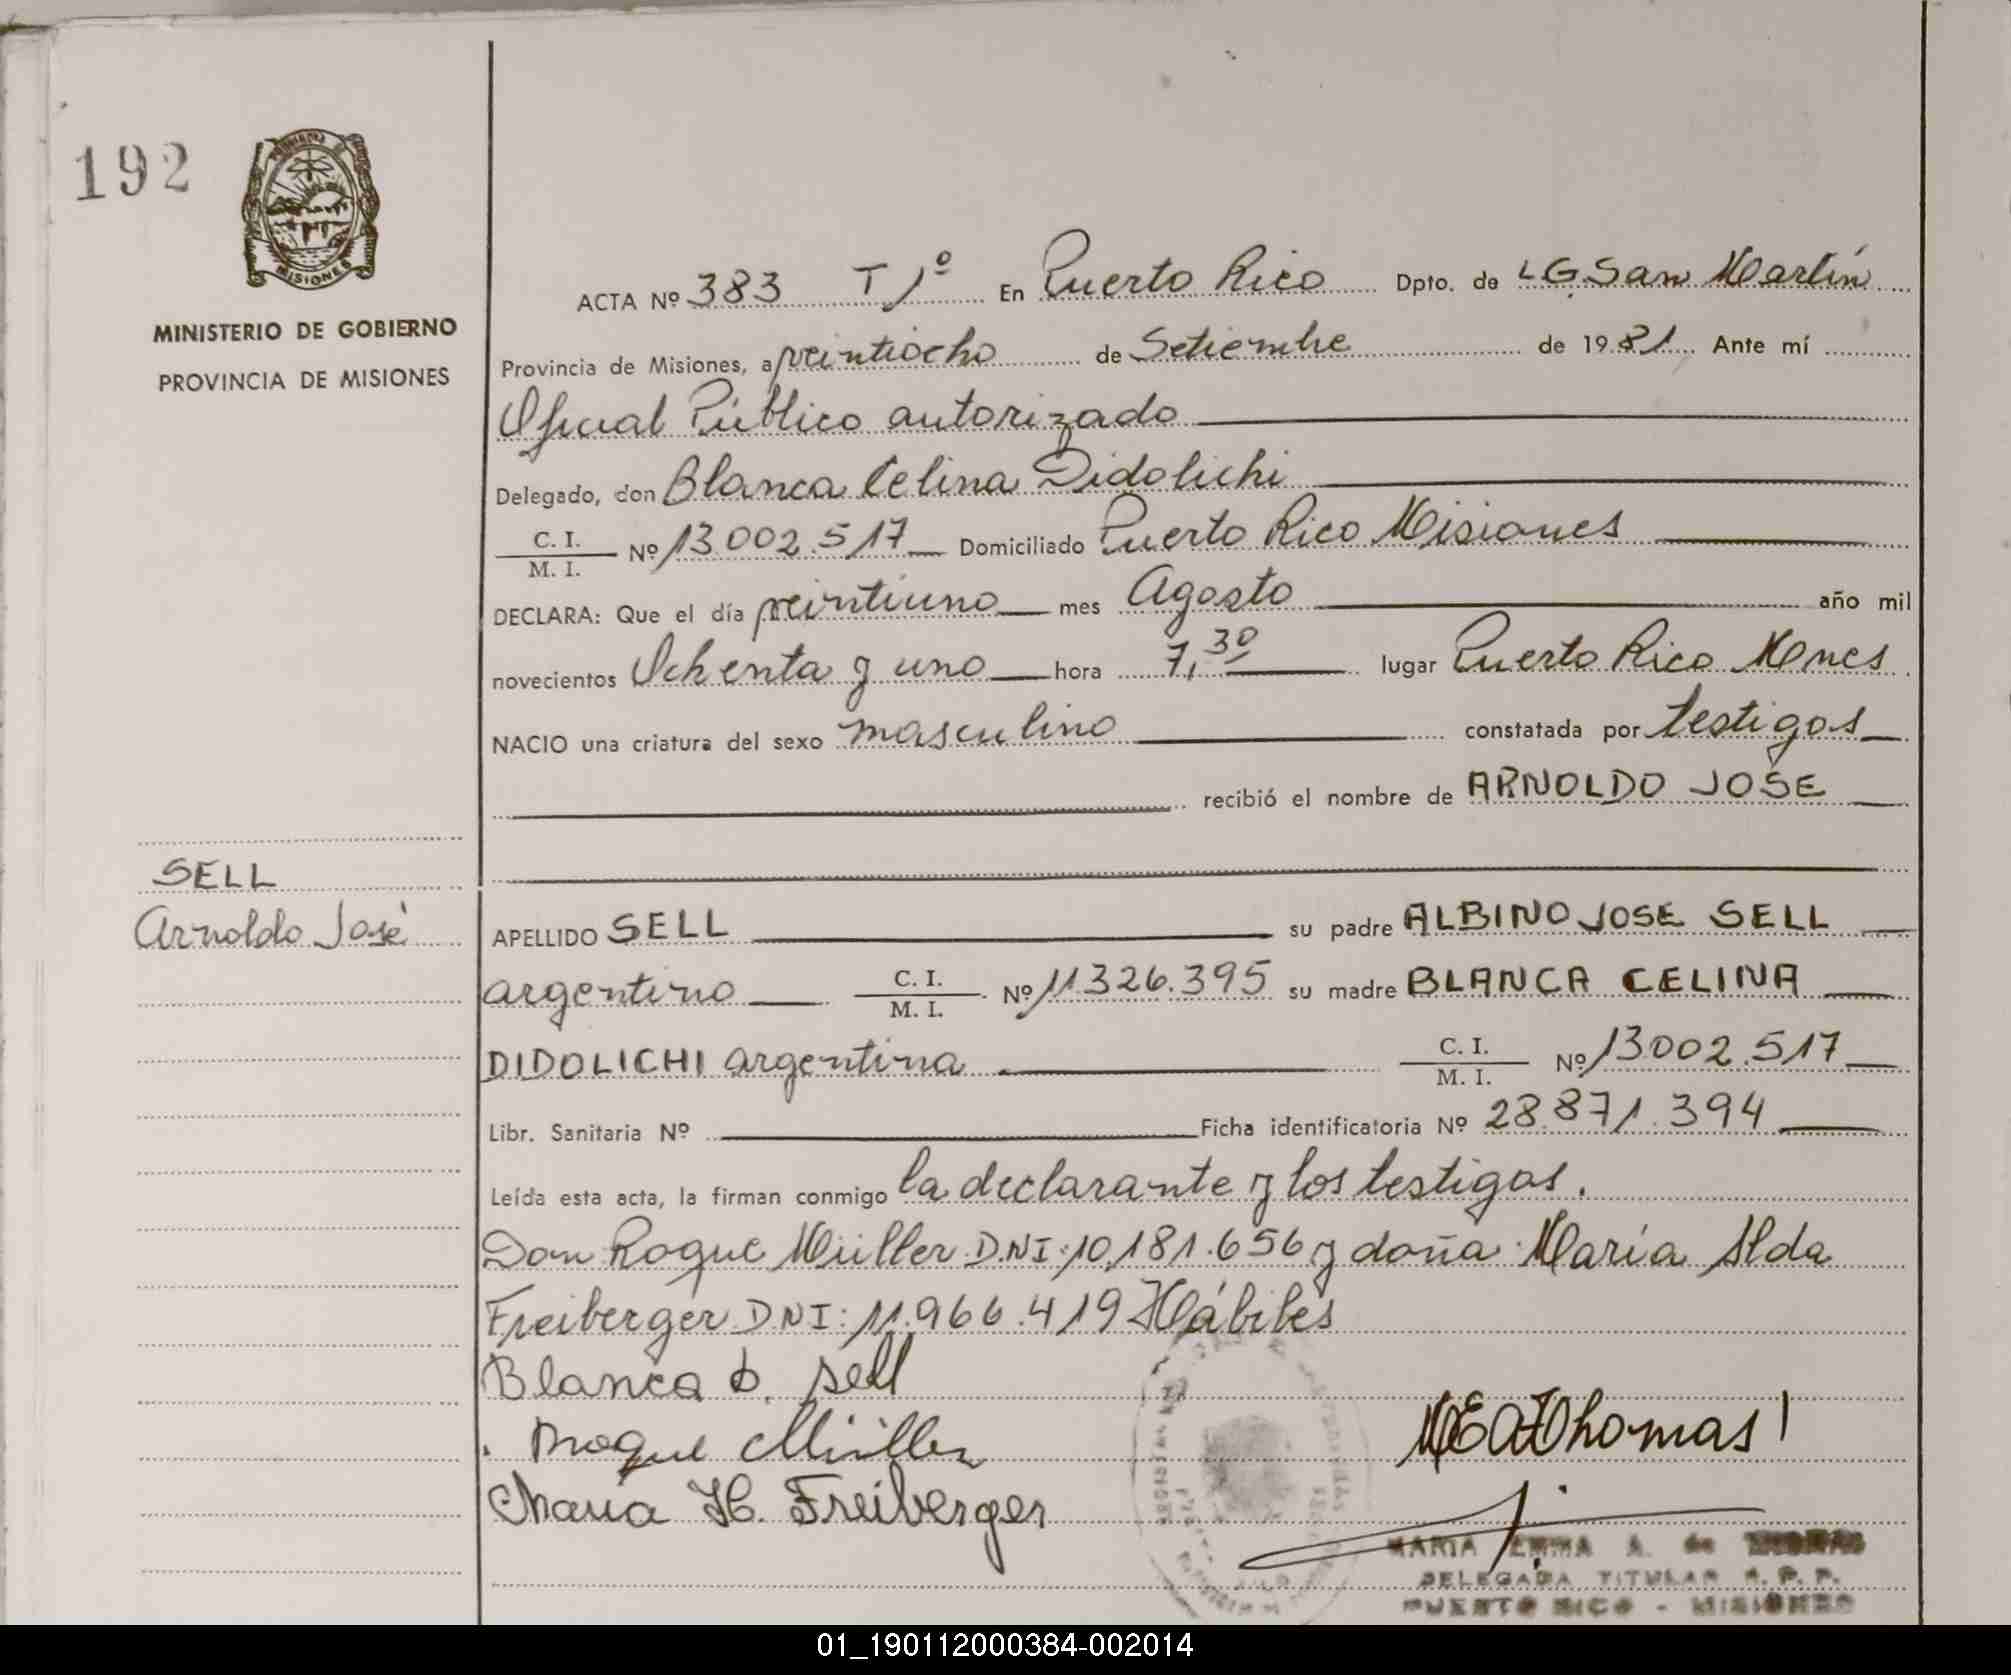 192
MISIONES
MINISTERIO DE GOBIERNO
PROVINCIA DE MISIONES
ACTA Nº 383 T 1º En Puerto Rico Dpto. de L.G. San Martín
Provincia de Misiones, a veintiocho de Setiembre de 1981 Ante mí
Oficial Público autorizado
Delegado, don Blanca Celina Didolichi
C. I.
M. I. Nº 13.002.517 Domiciliado Puerto Rico Misiones
DECLARA: Que el día veintiuno mes Agosto año mil
novecientos Ochenta y uno hora 7,30 lugar Puerto Rico Mnes
NACIO una criatura del sexo masculino constatada por testigos
recibió el nombre de ARNOLDO JOSE
SELL
Arnoldo José
APELLIDO SELL su padre ALBINO JOSE SELL
argentino C. I.
M. I. Nº 11.326.395 su madre BLANCA CELINA
DIDOLICHI argentina C. I.
M. I. Nº 13.002.517
Libr. Sanitaria Nº Ficha identificatoria Nº 28.871.394
Leída esta acta, la firman conmigo la declarante y los testigos.
Don Roque Müller D.N.I: 10.181.656 y doña María Alda
Freiberger D N I: 11.966.419 Hábiles
Blanca D. Sell
Roque Müller
Maria H. Freiberger
MEA Thomas
MARIA EMMA A. de
DELEGADA TITULAR R. P. P.
PUERTO RICO - MISIONES
01_190112000384-002014